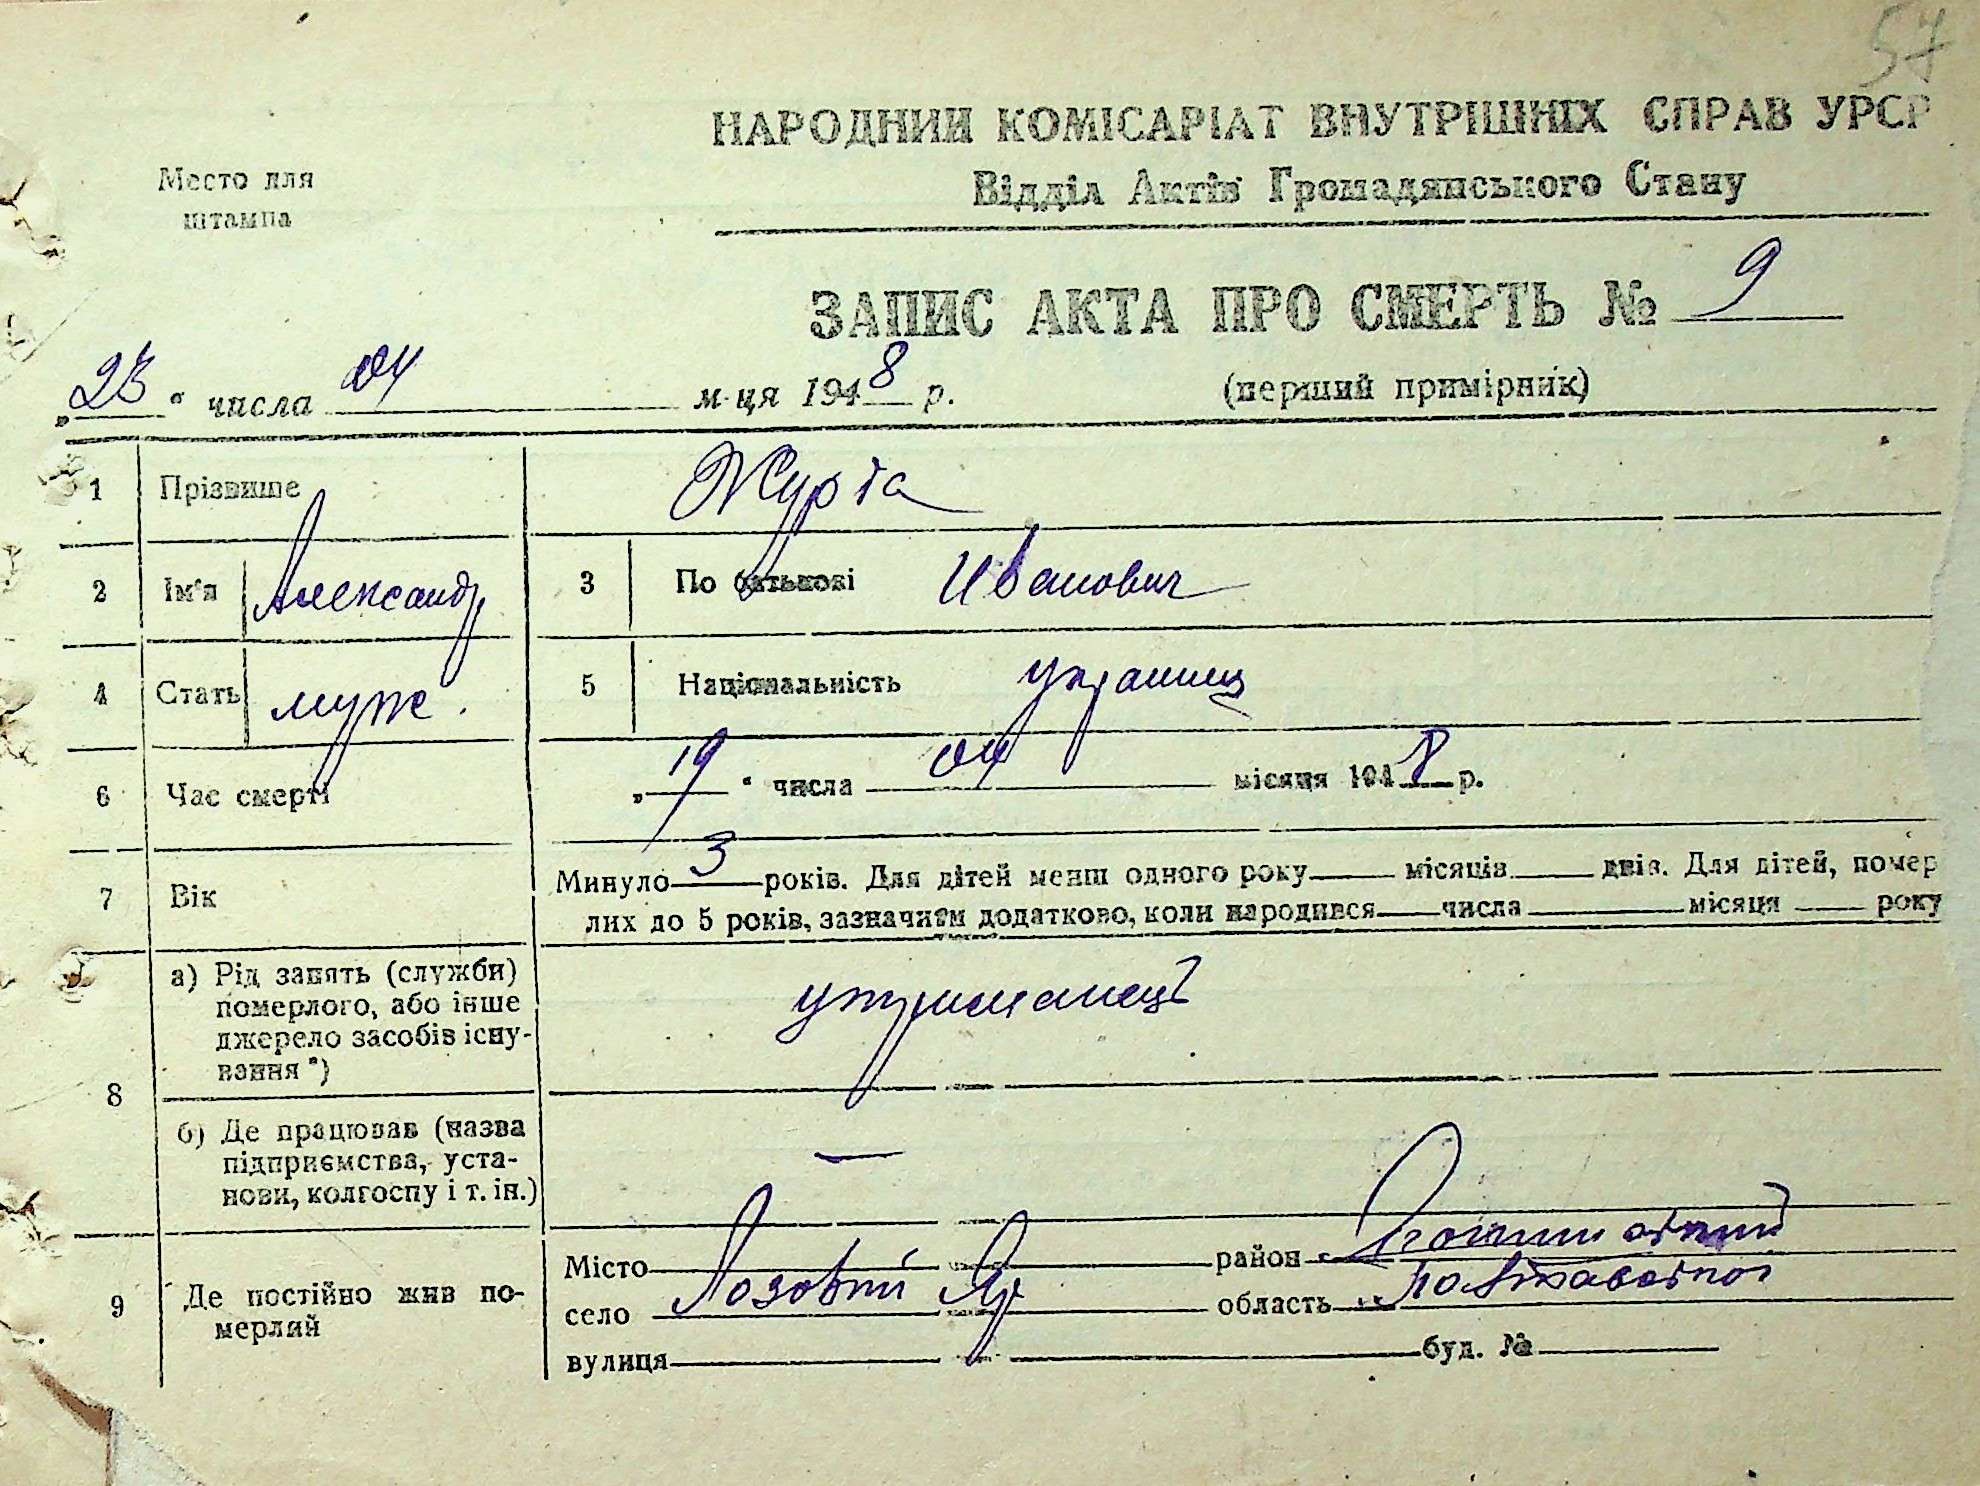 57
НАРОДНИЙ КОМІСАРІАТ ВНУТРІШНІХ СПРАВ УРСР
Место для
штампа
Відділ Актів Громадянського Стану
ЗАПИС АКТА ПРО СМЕРТЬ № 9
„23“ числа 04 м-ця 1948 р.
(перший примірник)
1 Прізвище Журба
2 Ім'я Александр 3 По батькові Иванович
4 Стать муж. 5 Національність украинец
6 Час смерті „19“ числа 04 місяця 1948 р.
7 Вік Минуло 3 років. Для дітей менш одного року місяців днів. Для дітей, помер
лих до 5 років, зазначити додатково, коли народився числа місяця року
8 а) Рід занять (служби)
померлого, або інше
джерело засобів існу-
вання*)
утриманець
б) Де працював (назва
підприємства, уста-
нови, колгоспу і т. ін.)
—
9 Де постійно жив по-
мерлий
Місто район
село Лозовий Яр область Полтавської
вулиця буд. №